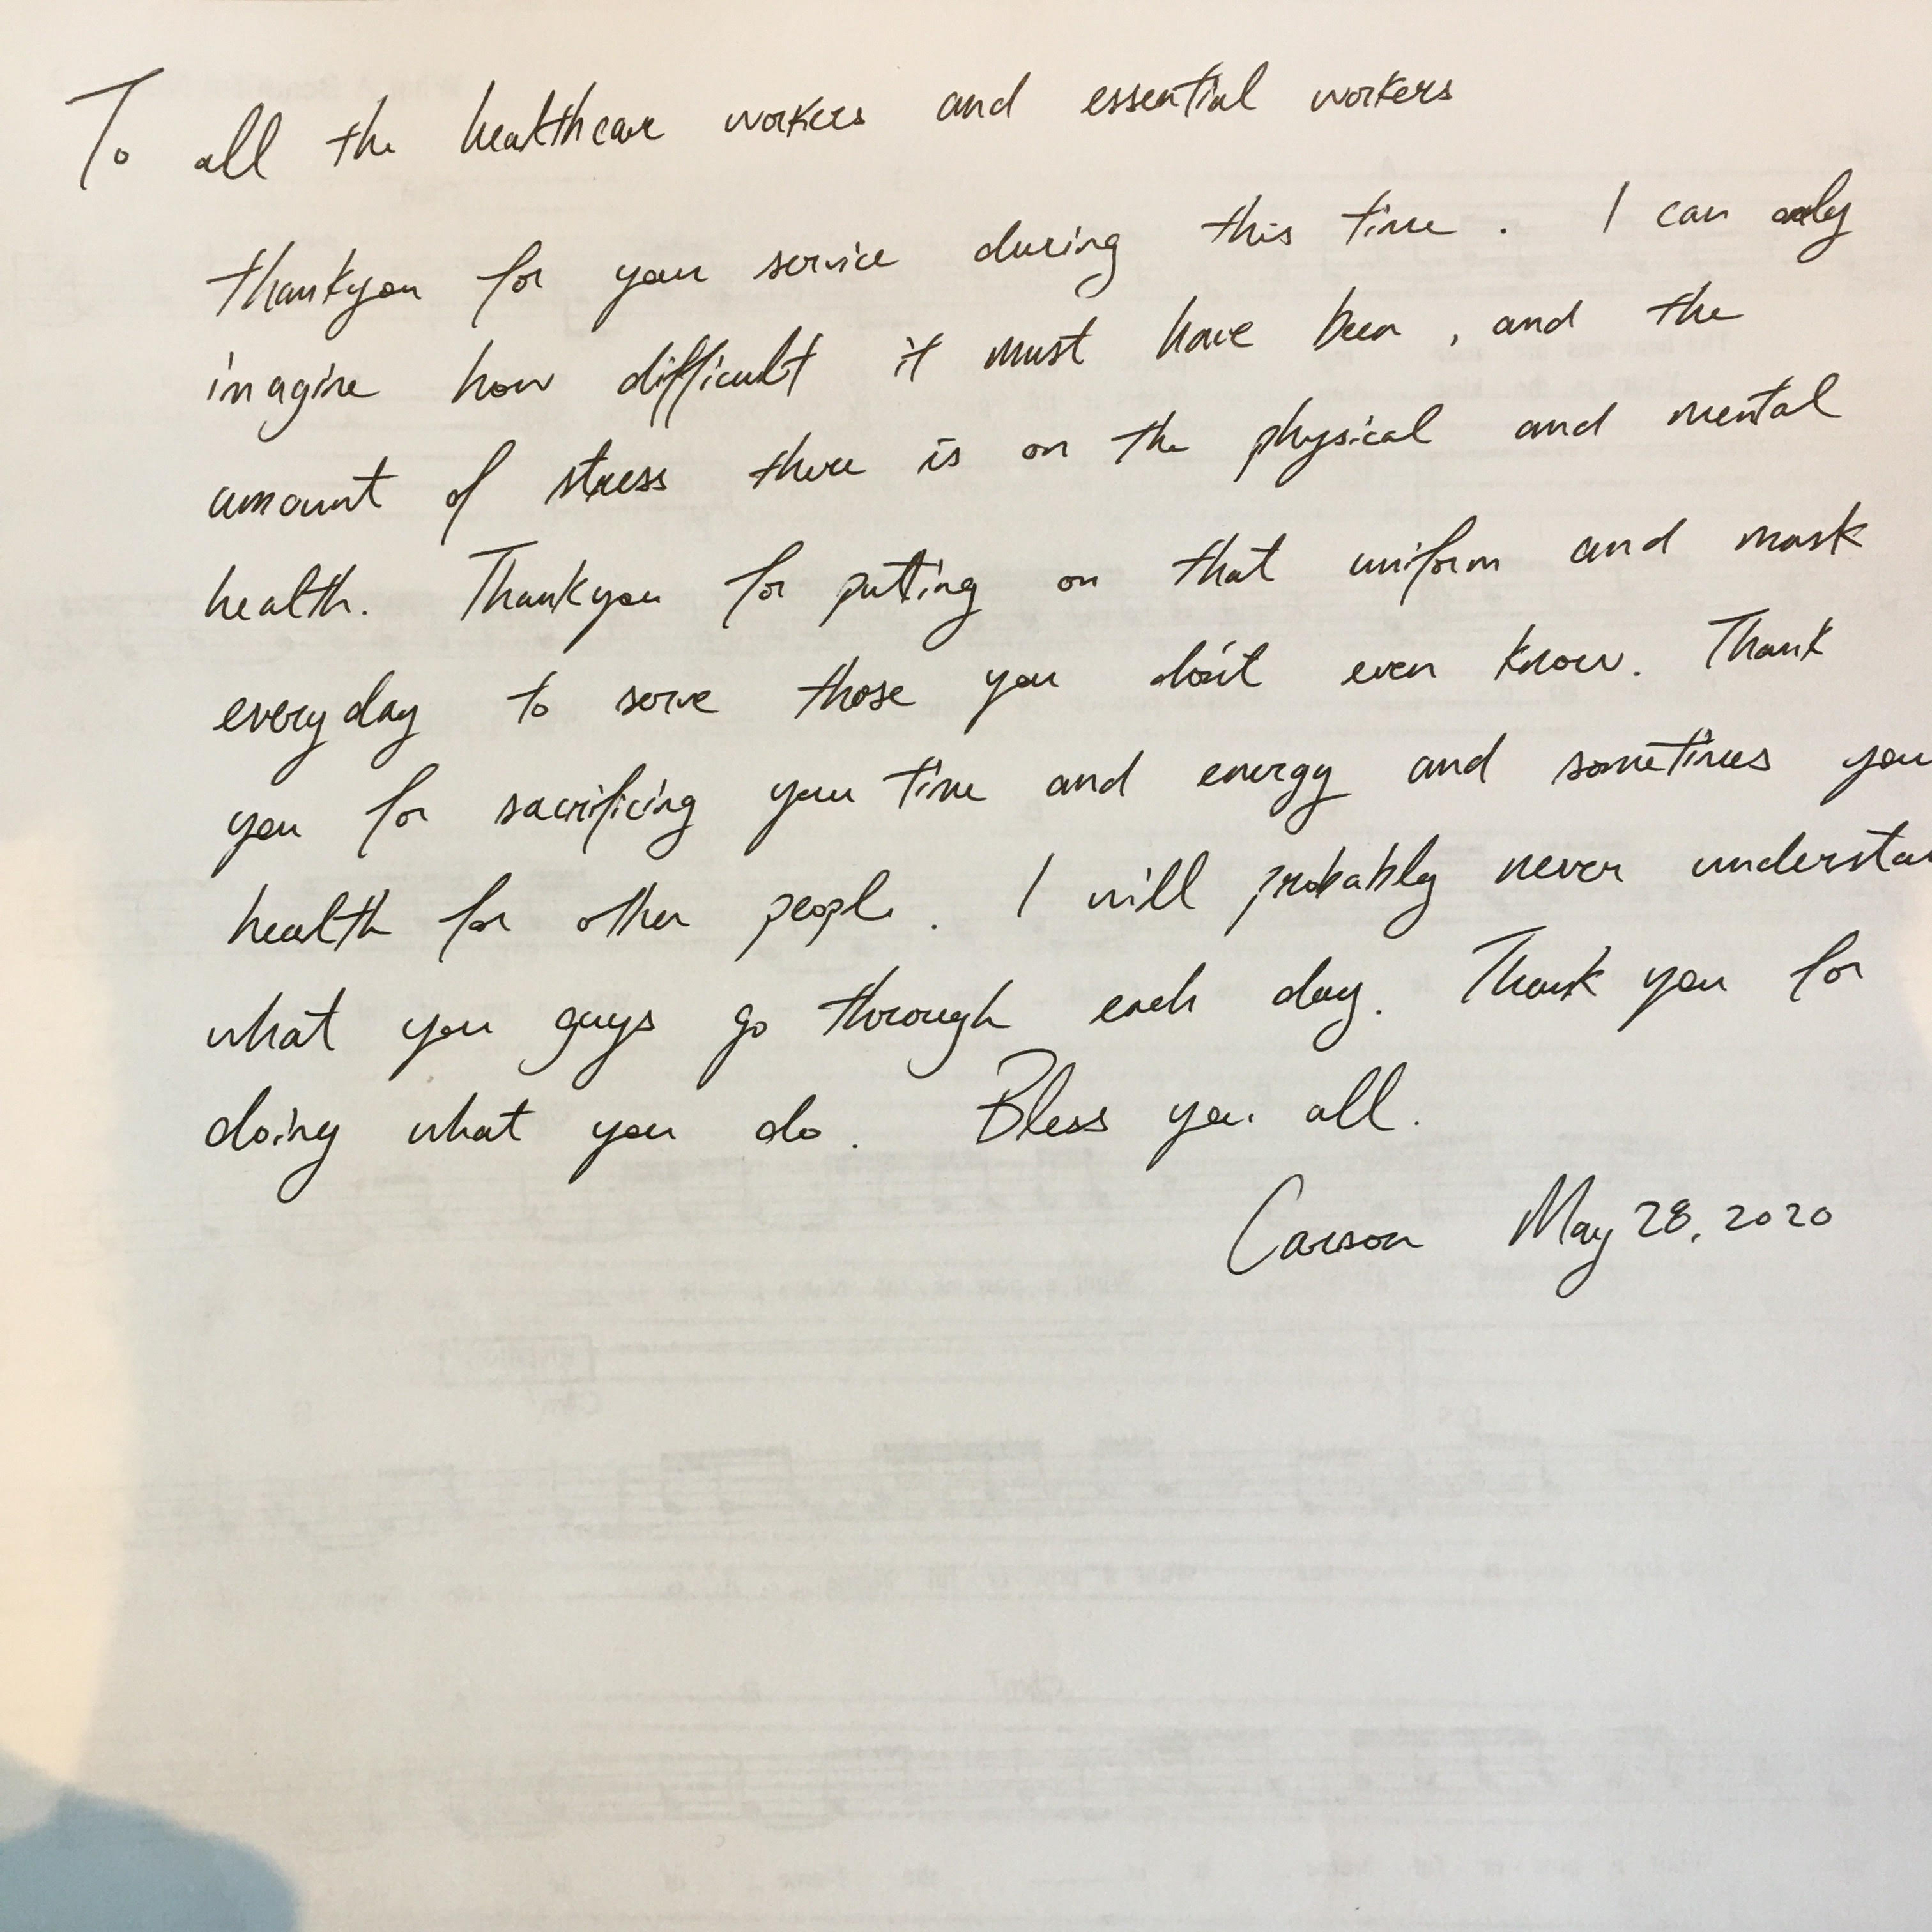 To all the healthcare workers and essential workers
thankyou for your service during this time. I can only
imagine how difficult it must have been, and the
amount of stress there is on the physical and mental
health. Thankyou for putting on that uniform and mask
everyday to serve those you don't even know. Thank
you for sacrificing your time and energy and sometimes your
health for other people. I will probably never understan
what you guys go through each day. Thank you for
doing what you do. Bless you all.
Carson May 28, 2020